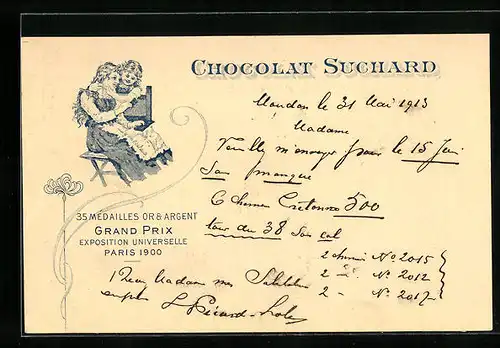 CHOCOLAT SUCHARD
Moudon le 31 Mai 1913
Madame
Veuillez m'envoyer pour le 15 Juin
San manque
6 chemises Cretonne 500
tour du 38 Son col
2 chemises No 2015
2 — No 2012
2 — No 2017
35 MEDAILLES OR & ARGENT
GRAND PRIX
EXPOSITION UNIVERSELLE
PARIS 1900
Madame mes